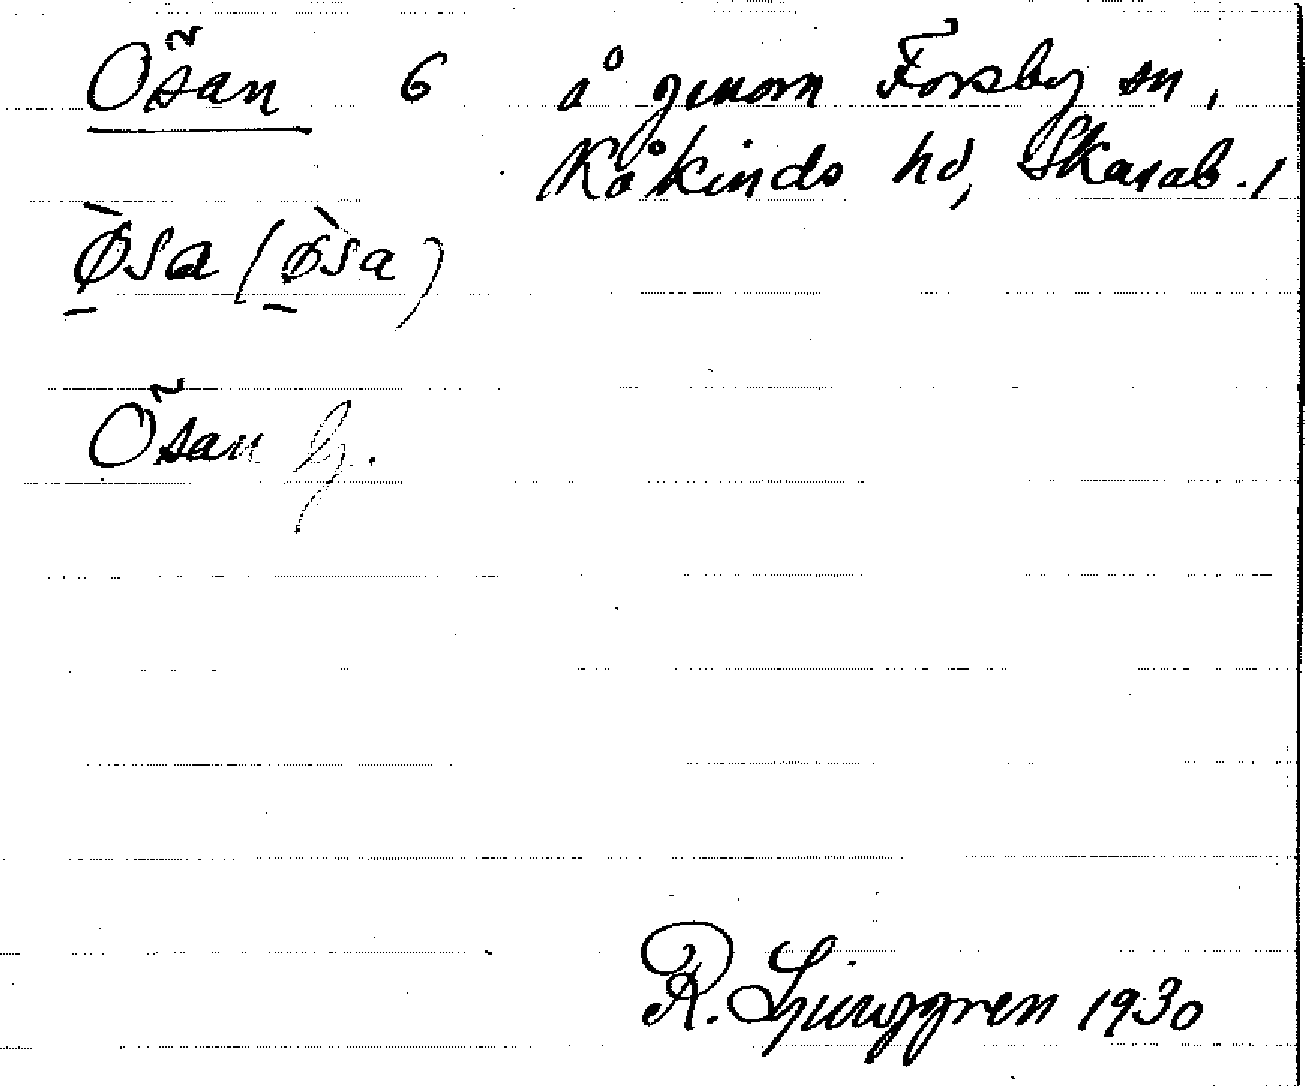 Ösan 6 å genom Forsby sn,
Kåkinds hd, Skarab. l
Ø̱̀sa (ø̱̀sa)
Ösan
R. Ljunggren 1930